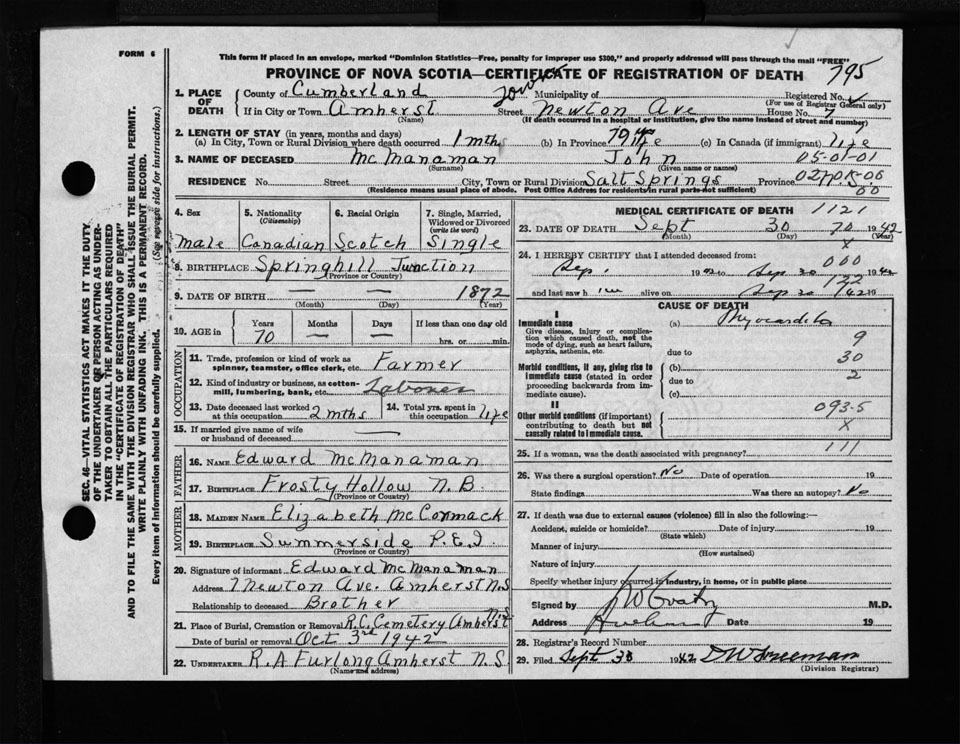 FORM 6
This form if placed in an envelope, marked "Dominion Statistics—Free, penalty for improper use $300," and properly addressed will pass through the mail "FREE"
PROVINCE OF NOVA SCOTIA—CERTIFICATE OF REGISTRATION OF DEATH 795
1. PLACE OF DEATH
County of Cumberland Town Municipality of Registered No.
(For use of Registrar General only)
If in City or Town Amherst Street Newton Ave House No. 7
(Name) (If death occurred in a hospital or institution, give the name instead of street and number)
2. LENGTH OF STAY (in years, months and days)
(a) In City, Town or Rural Division where death occurred 1 mths (b) In Province life (c) In Canada (if immigrant) life
3. NAME OF DECEASED McManaman John 05-01-01
(Surname) (Given name or names)
RESIDENCE No. Street City, Town or Rural Division Salt Springs Province
(Residence means usual place of abode. Post Office Address for residents in rural parts not sufficient) 00
4. Sex 5. Nationality (Citizenship) 6. Racial Origin 7. Single, Married, Widowed or Divorced (write the word)
Male Canadian Scotch Single
8. BIRTHPLACE Springhill Junction
(Province or Country)
9. DATE OF BIRTH — — 1872
(Month) (Day) (Year)
10. AGE in Years Months Days If less than one day old
70 — — hrs. or min.
OCCUPATION
11. Trade, profession or kind of work as spinner, teamster, office clerk, etc. Farmer
12. Kind of industry or business, as cotton-mill, lumbering, bank, etc. Laborer
13. Date deceased last worked at this occupation 2 mths 14. Total yrs. spent in this occupation life
15. If married give name of wife or husband of deceased —
FATHER
16. Name Edward McManaman
17. Birthplace Frosty Hollow N.B.
(Province or Country)
MOTHER
18. Maiden Name Elizabeth McCormack
19. Birthplace Summerside P.E.I
(Province or Country)
20. Signature of informant Edward McManaman
Address 7 Newton Ave. Amherst N.S
Relationship to deceased Brother
21. Place of Burial, Cremation or Removal R.C. Cemetery Amherst N.S
Date of burial or removal Oct 3rd 1942
22. Undertaker R.A Furlong Amherst N.S.
(Name and address)
MEDICAL CERTIFICATE OF DEATH 1121
23. DATE OF DEATH Sept 30 1942
(Month) (Day) (Year)
x
24. I HEREBY CERTIFY that I attended deceased from: 000
Sep. 1 19 42 to Sep 30 1942
122
and last saw him alive on Sep 30 /42 19
CAUSE OF DEATH
I
Immediate cause
Give disease, injury or complication which caused death, not the mode of dying, such as heart failure, asphyxia, asthenia, etc.
(a) Myocarditis
9
due to
30
Morbid conditions, if any, giving rise to immediate cause (stated in order proceeding backwards from immediate cause).
(b)
due to 2
(c)
II
Other morbid conditions (if important) contributing to death but not causally related to immediate cause.
093-5
x
25. If a woman, was the death associated with pregnancy? 111
26. Was there a surgical operation? No Date of operation 19
State findings Was there an autopsy? No
27. If death was due to external causes (violence) fill in also the following:—
Accident, suicide or homicide? Date of injury 19
(State which)
Manner of injury
(How sustained)
Nature of injury
Specify whether injury occurred in industry, in home, or in public place
Signed by M.D.
Address Date 19
28. Registrar's Record Number
29. Filed Sept 30 1942 D W Freeman
(Division Registrar)
SEC. 46—VITAL STATISTICS ACT MAKES IT THE DUTY OF THE UNDERTAKER OR PERSON ACTING AS UNDERTAKER TO OBTAIN ALL THE PARTICULARS REQUIRED IN THE "CERTIFICATE OF REGISTRATION OF DEATH" AND TO FILE THE SAME WITH THE DIVISION REGISTRAR WHO SHALL ISSUE THE BURIAL PERMIT.
WRITE PLAINLY WITH UNFADING INK. THIS IS A PERMANENT RECORD.
Every item of information should be carefully supplied. (See reverse side for instructions.)